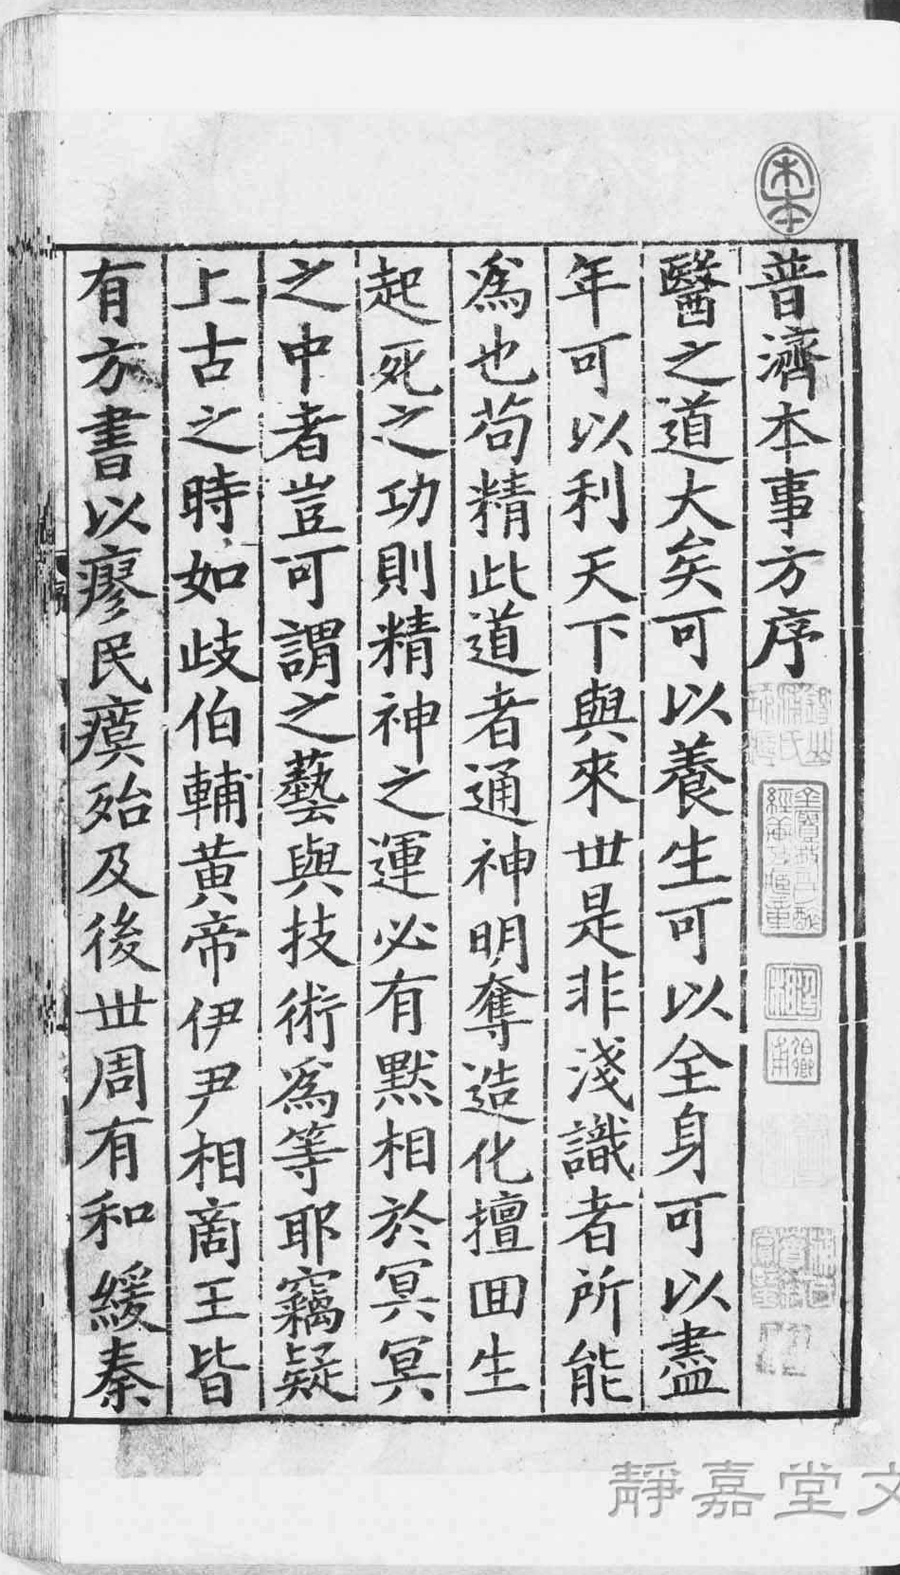 宋本
普濟本事方序
醫之道大矣可以養生可以全身可以盡
年可以利天下與來世是非淺識者所能
爲也苟精此道者通神明奪造化擅回生
起死之功則精神之運必有默相於冥冥
之中者豈可謂之藝與技術爲等耶竊疑
上古之時如歧伯輔黃帝伊尹相商王皆
有方書以瘳民瘼殆及後世周有和緩秦
靜嘉堂文